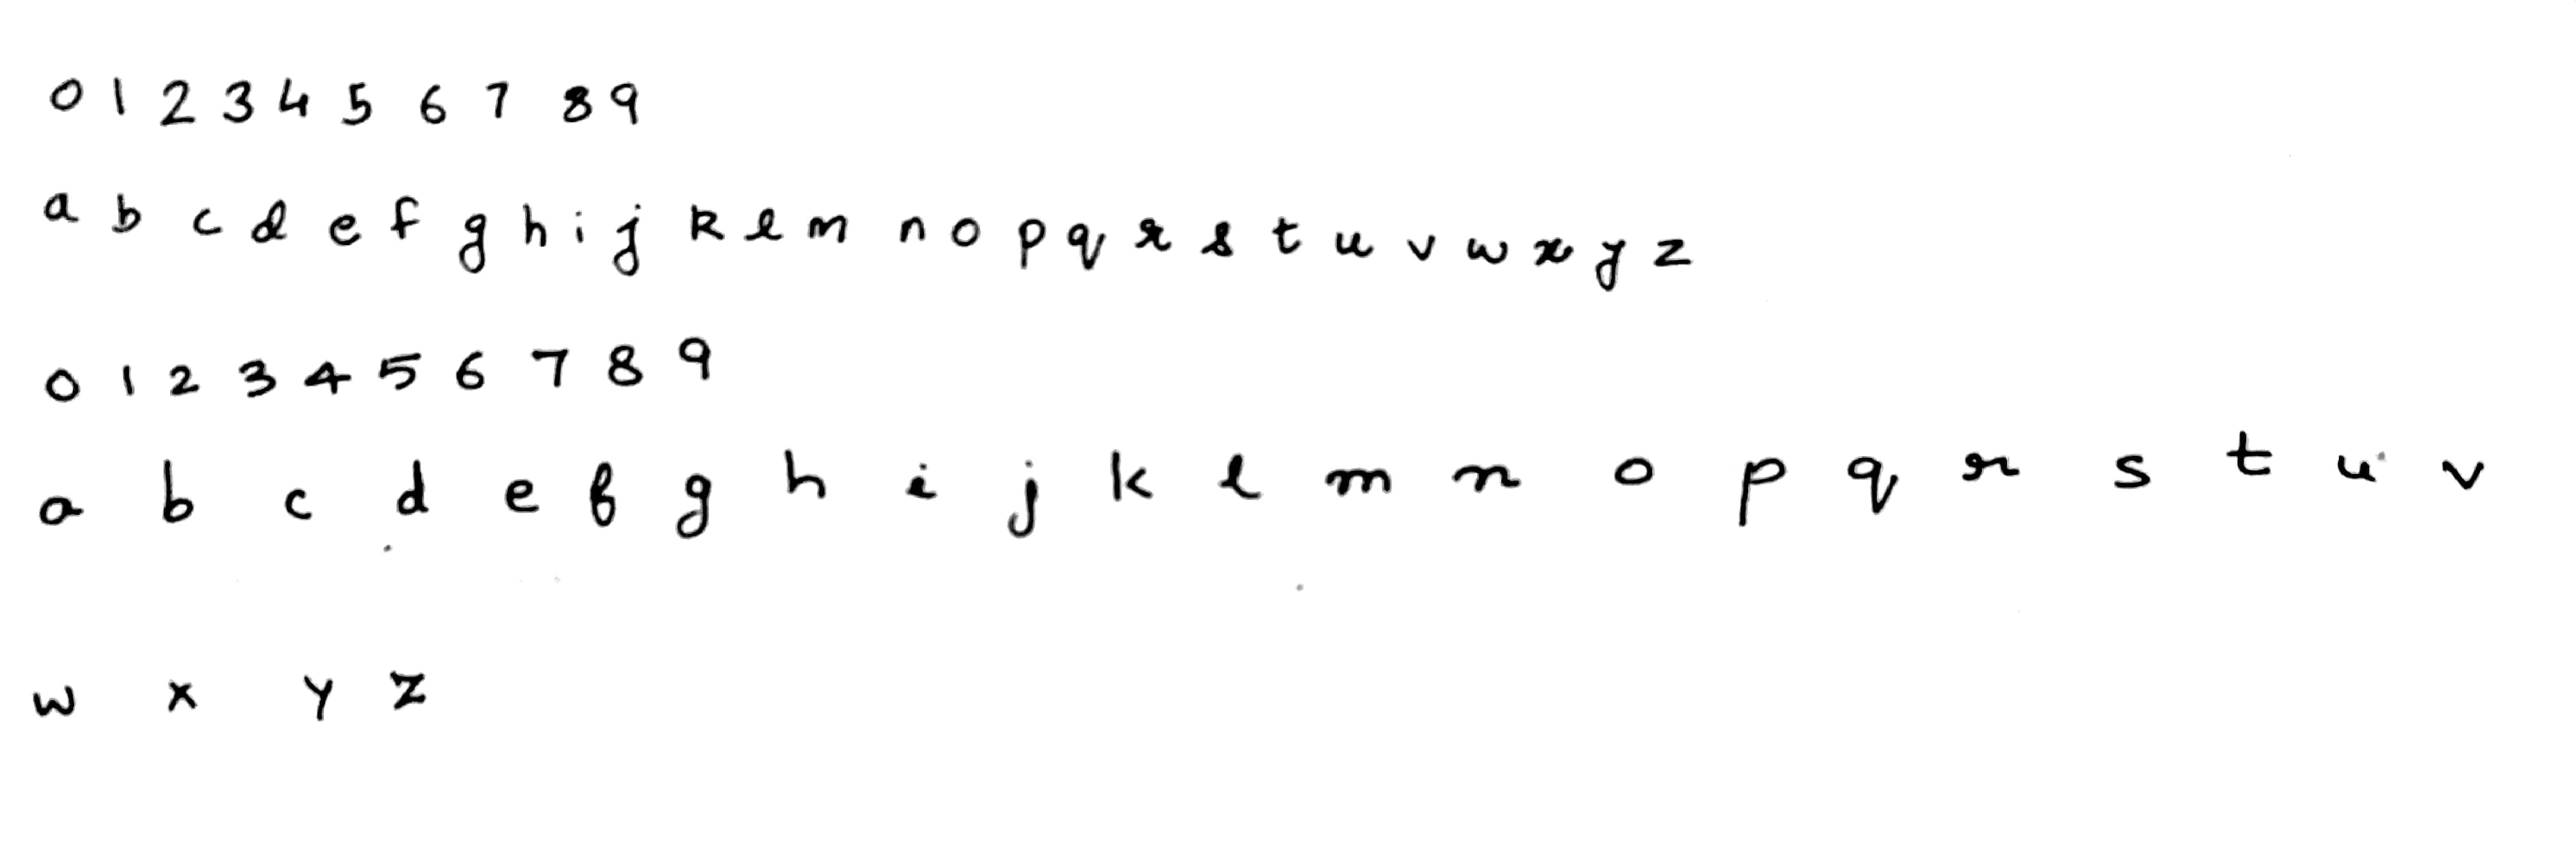 0 1 2 3 4 5 6 7 8 9
a b c d e f g h i j k l m n o p q r s t u v w x y z
0 1 2 3 4 5 6 7 8 9
a b c d e f g h i j k l m n o p q r s t u v
w x y z